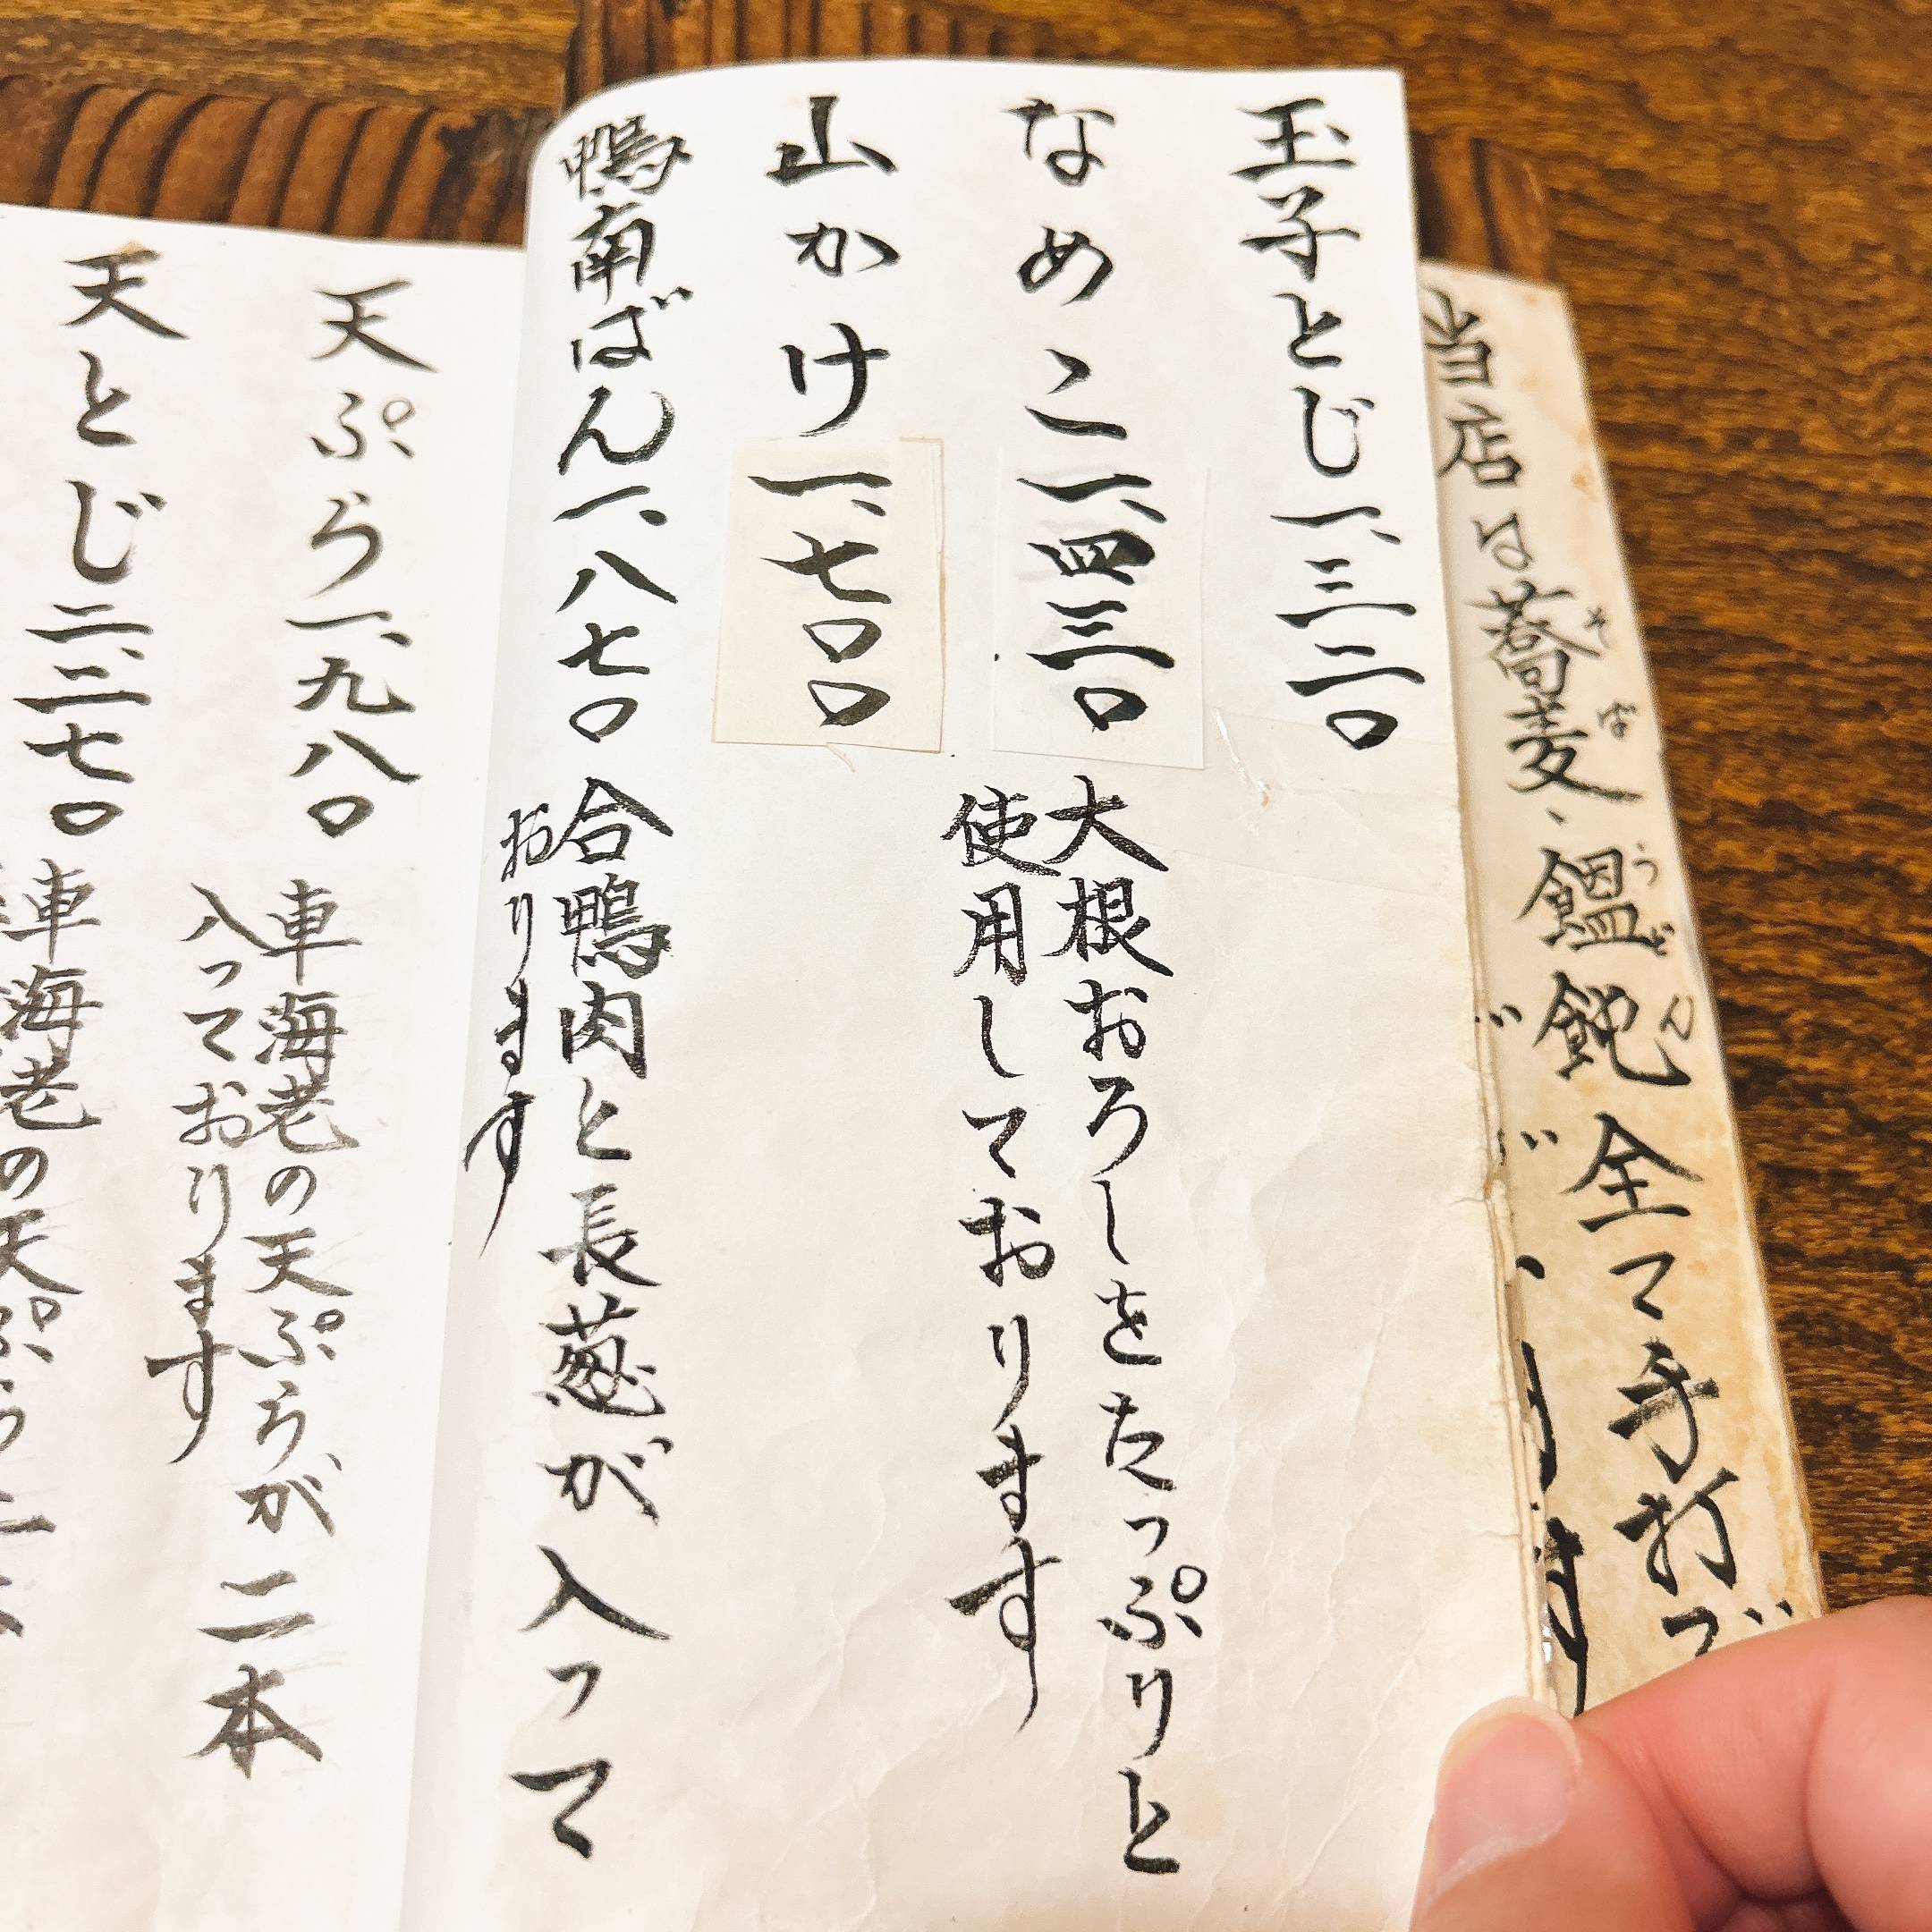 当店は蕎麦、饂飩全て手打
そば
うどん
玉子とじ一、三二〇
なめこ一、四三〇
大根おろしをたっぷりと
使用しております
山かけ一、七〇〇
鴨南ばん一、八七〇
合鴨肉と長葱が入って
おります
天ぷら一、九八〇
車海老の天ぷらが二本
入っております
天とじ二、二七〇
車海老の天ぷら